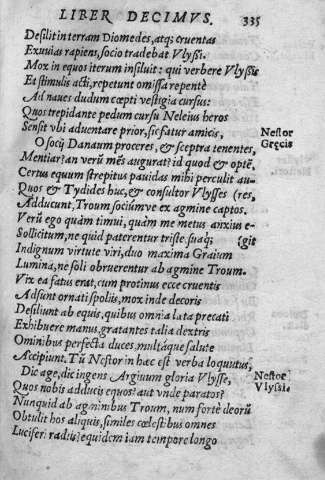 LIBER DECIMVS. 335
Desilit in terram Diomedes, atq; cruentas
Exuuias rapiens, socio tradebat Vlyssi.
Mox in equos iterum insiluit: qui verbere Vlyssis
Et stimulis acti, repetunt omissa repentè
Ad naues dudum cœpti vestigia cursus:
Quos trepidante pedum cursu Neleius heros
Sensit vbi aduentare prior, sic fatur amicis,
O socij Danaum proceres, & sceptra tenentes,
Nestor
Gręcis
Mentiar? an verū mēs augurat? id quod & optē.
Certus equum strepitus pauidas mihi perculit au-
Quos & Tydides huc, & consultor Vlysses (res,
Adducunt, Troum sociūmve ex agmine captos.
Verū ego quàm timui, quàm me metus anxius e-
Sollicitum, ne quid paterentur triste, suaq; (git
Indignum virtute viri, duo maxima Graium
Lumina, ne soli obruerentur ab agmine Troum.
Vix ea fatus erat, cum protinus ecce cruentis
Adsunt ornati spolijs, mox inde decoris
Desiliunt ab equis, quibus omnia lata precati
Exhibuere manus, gratantes talia dextris
Ominibus perfecta duces, multáque salute
Accipiunt. Tū Nestor in hæc est verba loquutus,
Dic age, dic ingens Argiuum gloria Vlysse,
Nestor
Vlyssi.
Quos nobis adducis equos? aut vnde paratos?
Nunquid ab agminibus Troum, num fortè deorū
Obtulit hos aliquis, similes cœlestibus omnes
Luciferi radiis? equidem iam tempore longo